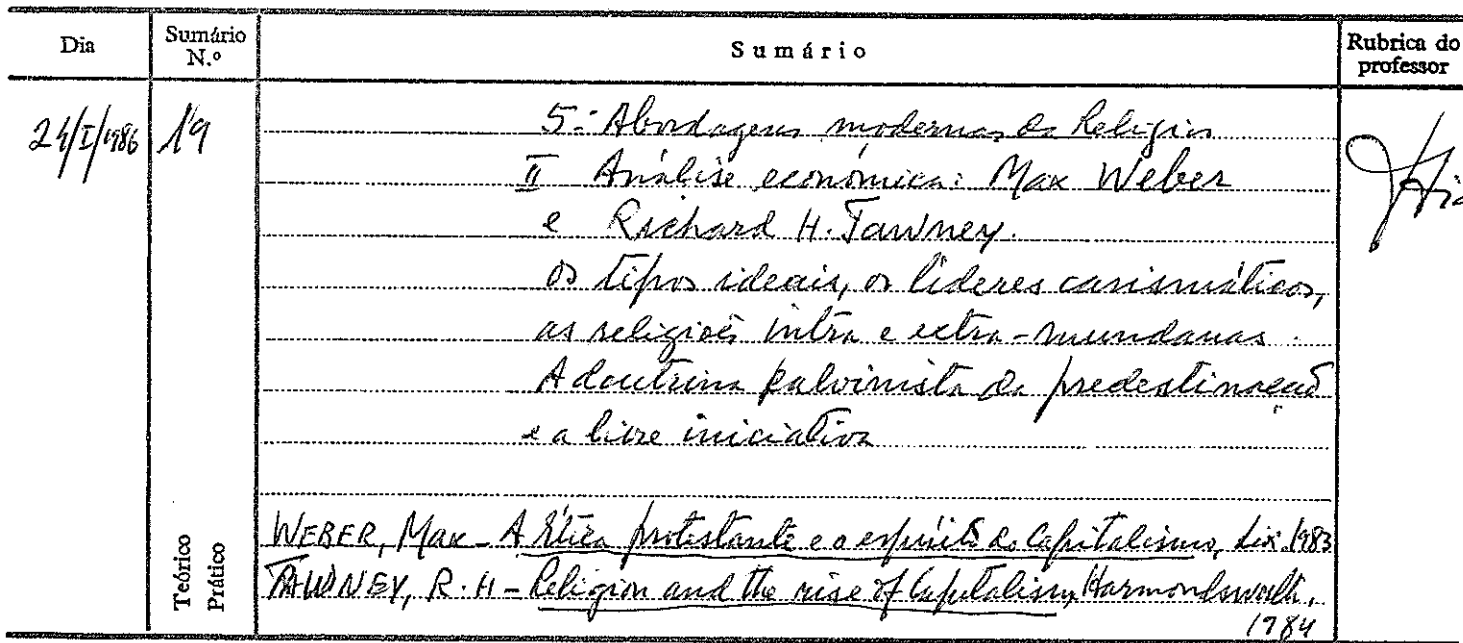 Dia
Sumário N.º
Sumário
Rubrica do professor
24/I/1986
19
5. Abordagens modernas da Religião
II Análise económica: Max Weber
e Richard H. Tawney.
Os tipos ideais, os líderes carismáticos,
as religiões intra e extra-mundanas.
A doutrina calvinista da predestinação
e a livre iniciativa
Teórico
Prático
WEBER, Max - A Ética protestante e o espírito do Capitalismo, Lix. 1983
TAWNEY, R. H - Religion and the rise of Capitalism, Harmondsworth,
1984